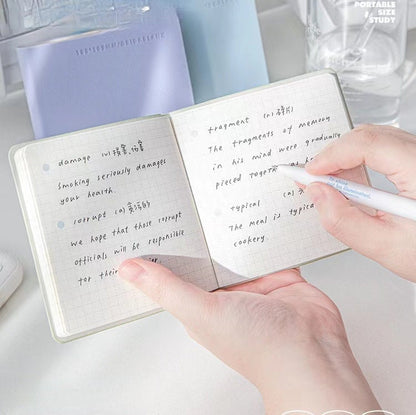 PORTABLE
SIZE
STUDY
damage (n) 损害,伤害
Smoking seriously damages
your health.
corrupt (a) 贪污的
We hope that those corrupt
officials will be responsible
for their
fragment (n) 碎片
The fragments of memory
in his mind were gradually
pieced together as he
typical (a)
The meal is typical
cookery.